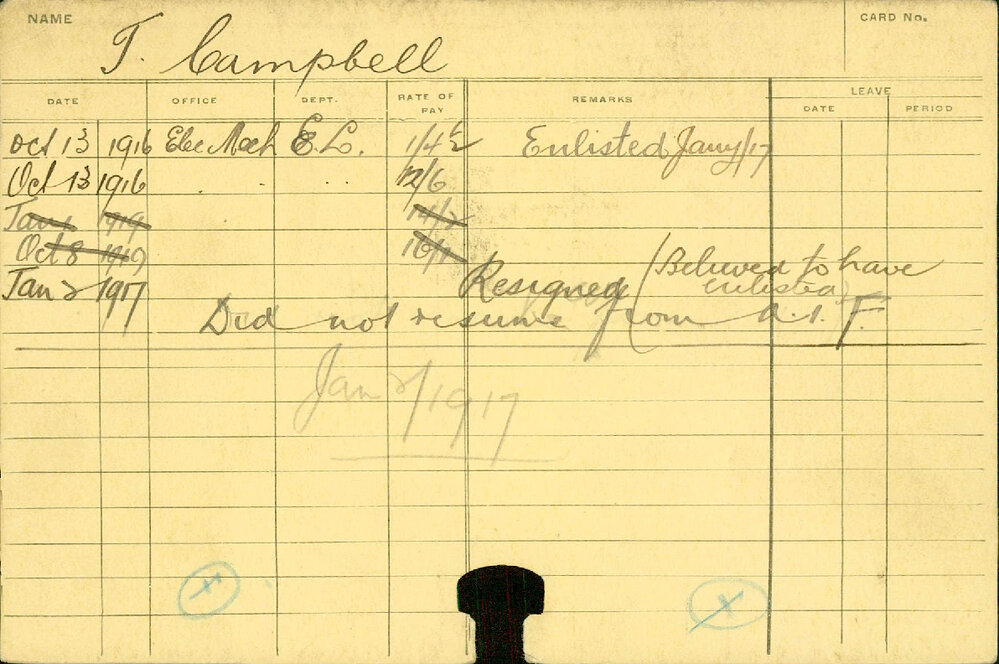 NAME
CARD No.
T. Campbell
DATE OFFICE DEPT. RATE OF PAY REMARKS LEAVE
DATE PERIOD
Oct 13 1916 Elec Mech E.L. 1/4½ Enlisted Jany/17
Oct 13 1916 12/6
Jan 1 1919
Oct 8 1919
Jan 2 1917 Resigned (Believed to have
enlisted)
Did not resume from A.I.F.
Jan 2/1917